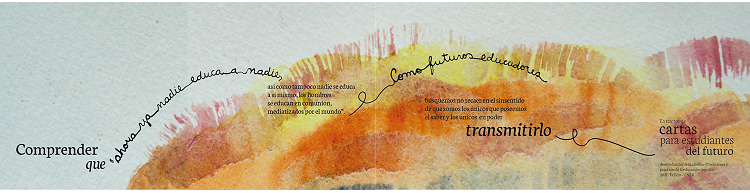 Comprender
que
"ahora ya nadie educa a nadie,
así como tampoco nadie se educa
a sí mismo, los hombres
se educan en comunión,
mediatizados por el mundo".
Como futuros educadores
busquemos no recaer en el sinsentido
de que somos los únicos que poseemos
el saber y los únicos en poder
transmitirlo
Extracto de
cartas
para estudiantes
del futuro